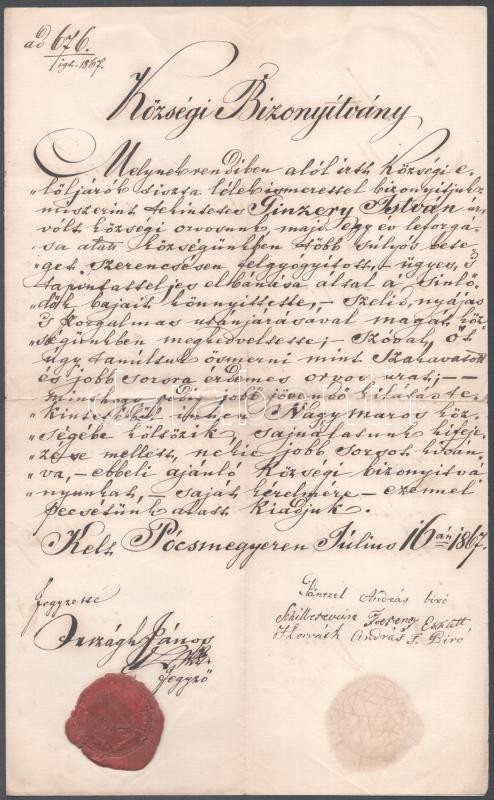 ad 676.
1867.
Községi Bizonyítvány
Melynek rendiben alól irtt Községi e-
"löljárók tiszta lélekismerettel bizonyitjuk,
miszerint tekintetes Ginzery István úr
volt községi orvosunk, majd egy év leforgá-
"sa alatt községünkben több súlyos bete-
"get szerencsésen felgyógyított, – ügyes, s
tapintatteljes elbánása által a sinlő-
"dők bajait könnyittette, – szelid, nyájas
s szorgalmas utánjárásával magát köz-
"ségünkben megkedveltette; – Szóval, Őt
úgy tanúltuk ösmerni mint Szakavatott
és jobb sorsra érdemes orvos urat; –
minthogy pedig jobb jövendő kilátás te-
"kintetéből innen Nagymaros köz-
"ségébe költözik, sajnálatunk kifeje-
"zése mellett, nekie jobb sorsot kiván-
"va, – ebbeli ajánló Községi bizonyitvá-
"nyunkat, – saját kérelmére – ezennel
pecsétünk alatt kiadjuk.
Kelt Pócsmegyeren Július 16án 1867.
Jegyzette
Országh János
Jegyző
András biró
Ferencz Eskütt
Horváth András T. Biró